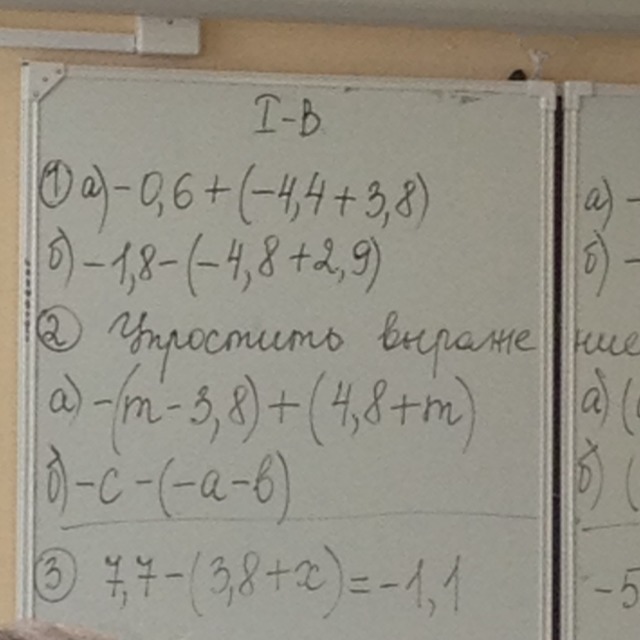 I-В
① а) -0,6+(-4,4+3,8)
б) -1,8-(-4,8+2,9)
② Упростить выражение
а) -(m-3,8)+(4,8+m)
б) -с-(-а-в)
③ 7,7-(3,8+x)=-1,1
а) -
б) -
а) (
б) (
-5